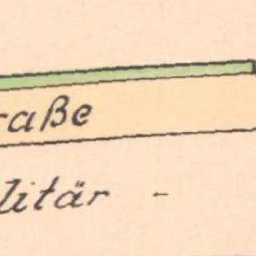 raße
litär -